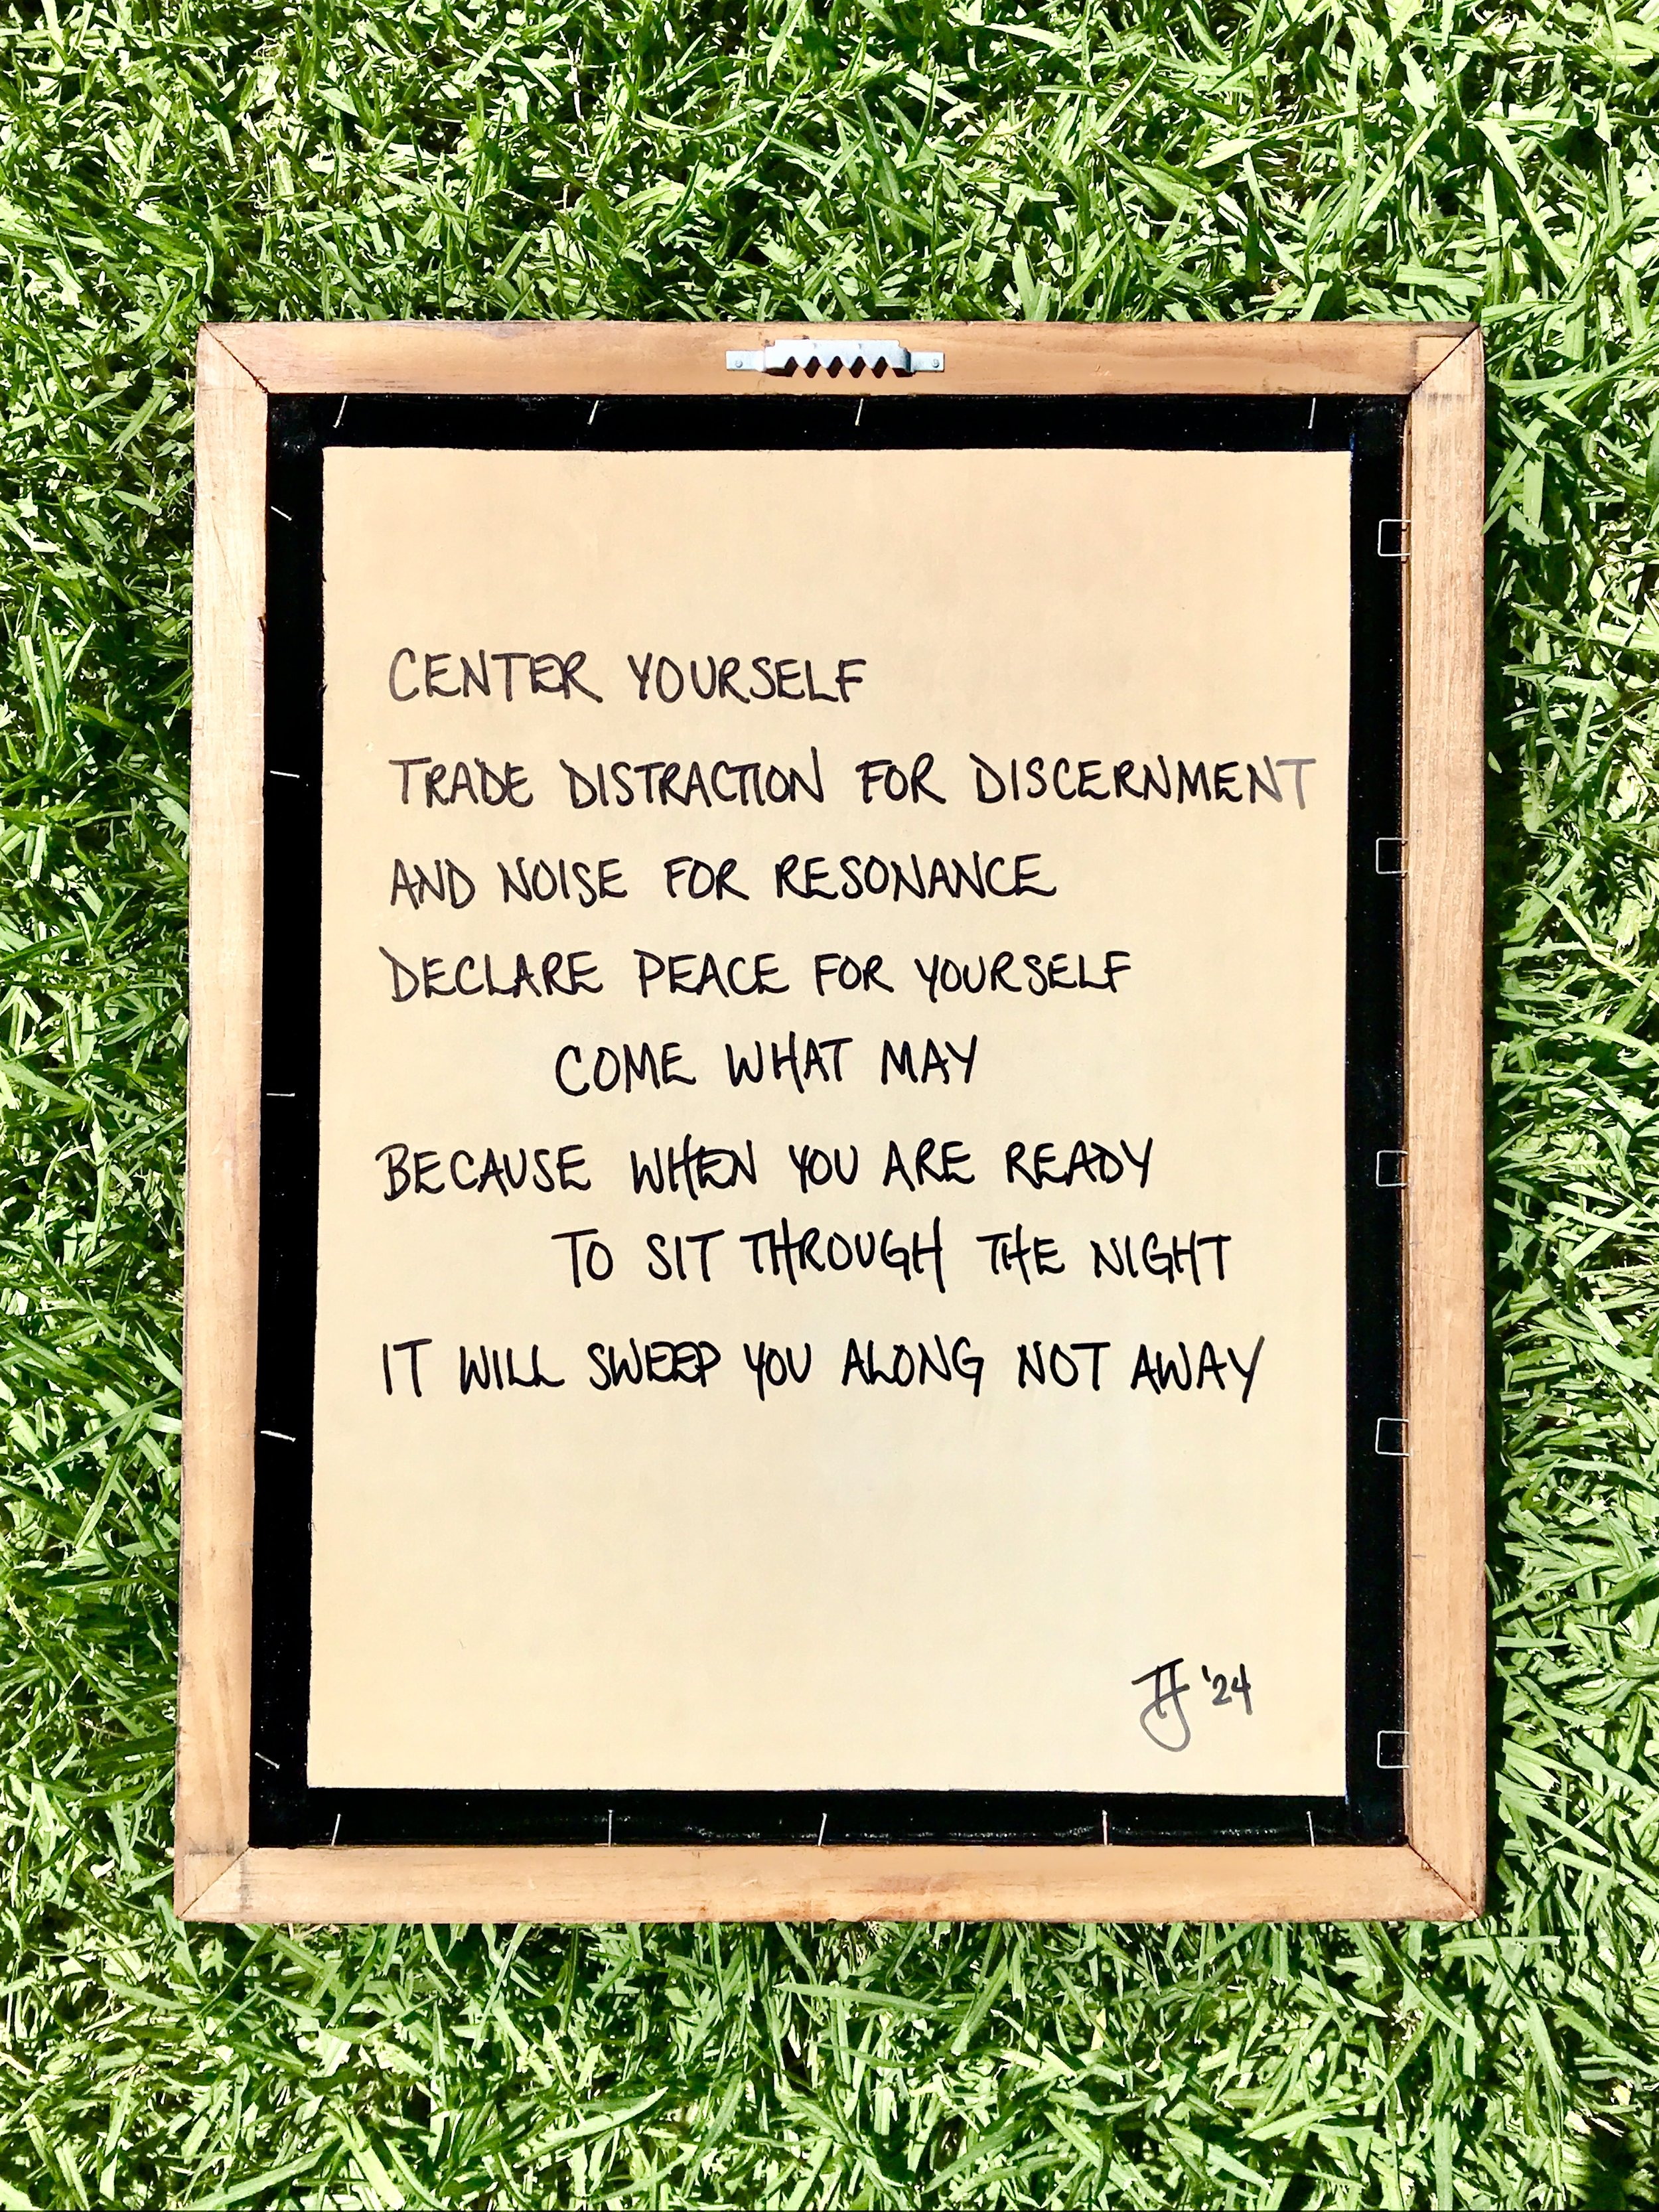 CENTER YOURSELF
TRADE DISTRACTION FOR DISCERNMENT
AND NOISE FOR RESONANCE
DECLARE PEACE FOR YOURSELF
COME WHAT MAY
BECAUSE WHEN YOU ARE READY
TO SIT THROUGH THE NIGHT
IT WILL SWEEP YOU ALONG NOT AWAY
'24